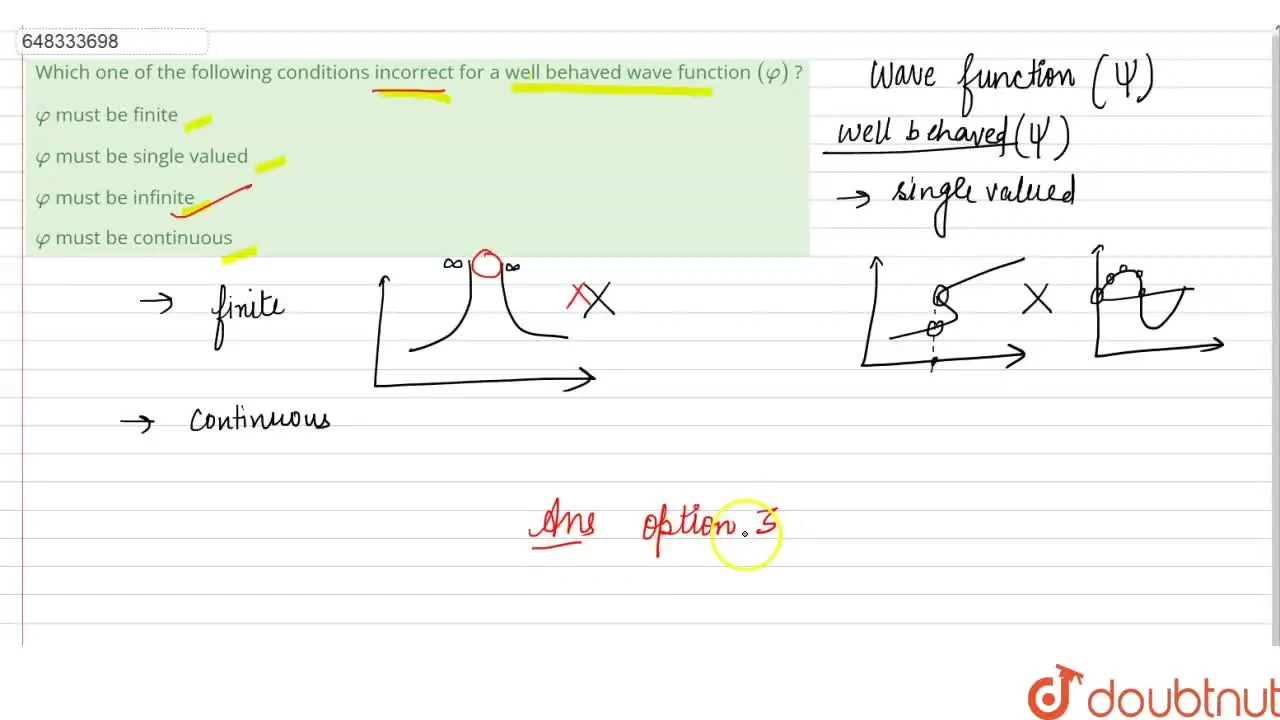 648333698
Which one of the following conditions incorrect for a well behaved wave function (φ) ?
φ must be finite
φ must be single valued
φ must be infinite
φ must be continuous
wave function (Ψ)
well behaved (Ψ)
→ single valued
→ finite
∞ ∞
XX
X
→ continuous
Ans option.3
doubtnut